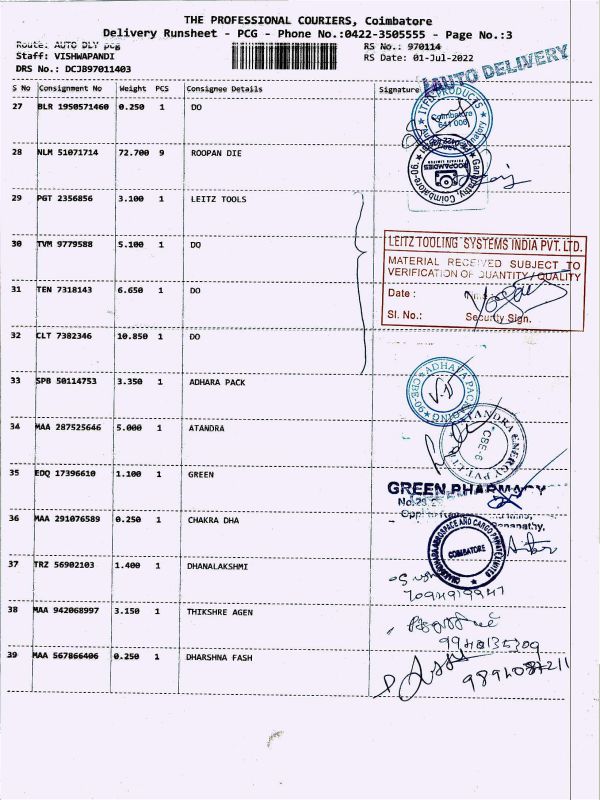 THE PROFESSIONAL COURIERS, Coimbatore
Delivery Runsheet - PCG - Phone No.:0422-3505555 - Page No.:3
Route: AUTO DLY pcg
RS No.: 970114
Staff: VISHWAPANDI
RS Date: 01-Jul-2022
DRS No.: DCJB97011403
AUTO DELIVERY
S No Consignment No Weight PCS Consignee Details Signature
27 BLR 1950571460 0.250 1 DO
PRODUCTS
Coimbatore
641 006
28 NLM 51071714 72.700 9 ROOPAN DIE
Ganapathy, Coimbatore
29 PGT 2356856 3.100 1 LEITZ TOOLS
30 TVM 9779588 5.100 1 DO
LEITZ TOOLING SYSTEMS INDIA PVT. LTD.
MATERIAL RECEIVED SUBJECT TO
VERIFICATION OF QUANTITY / QUALITY
31 TEN 7318143 6.650 1 DO
Date :
Sl. No.: Security Sign.
32 CLT 7382346 10.850 1 DO
33 SPB 50114753 3.350 1 ADHARA PACK
34 MAA 287525646 5.000 1 ATANDRA
ATANDRA ENERGY PVT. LTD
CBE-6
35 EDQ 17396610 1.100 1 GREEN
GREEN PHARMACY
36 MAA 291076589 0.250 1 CHAKRA DHA
COIMBATORE
37 TRZ 56902103 1.400 1 DHANALAKSHMI
38 MAA 942068997 3.150 1 THIKSHRE AGEN
39 MAA 567866406 0.250 1 DHARSHNA FASH